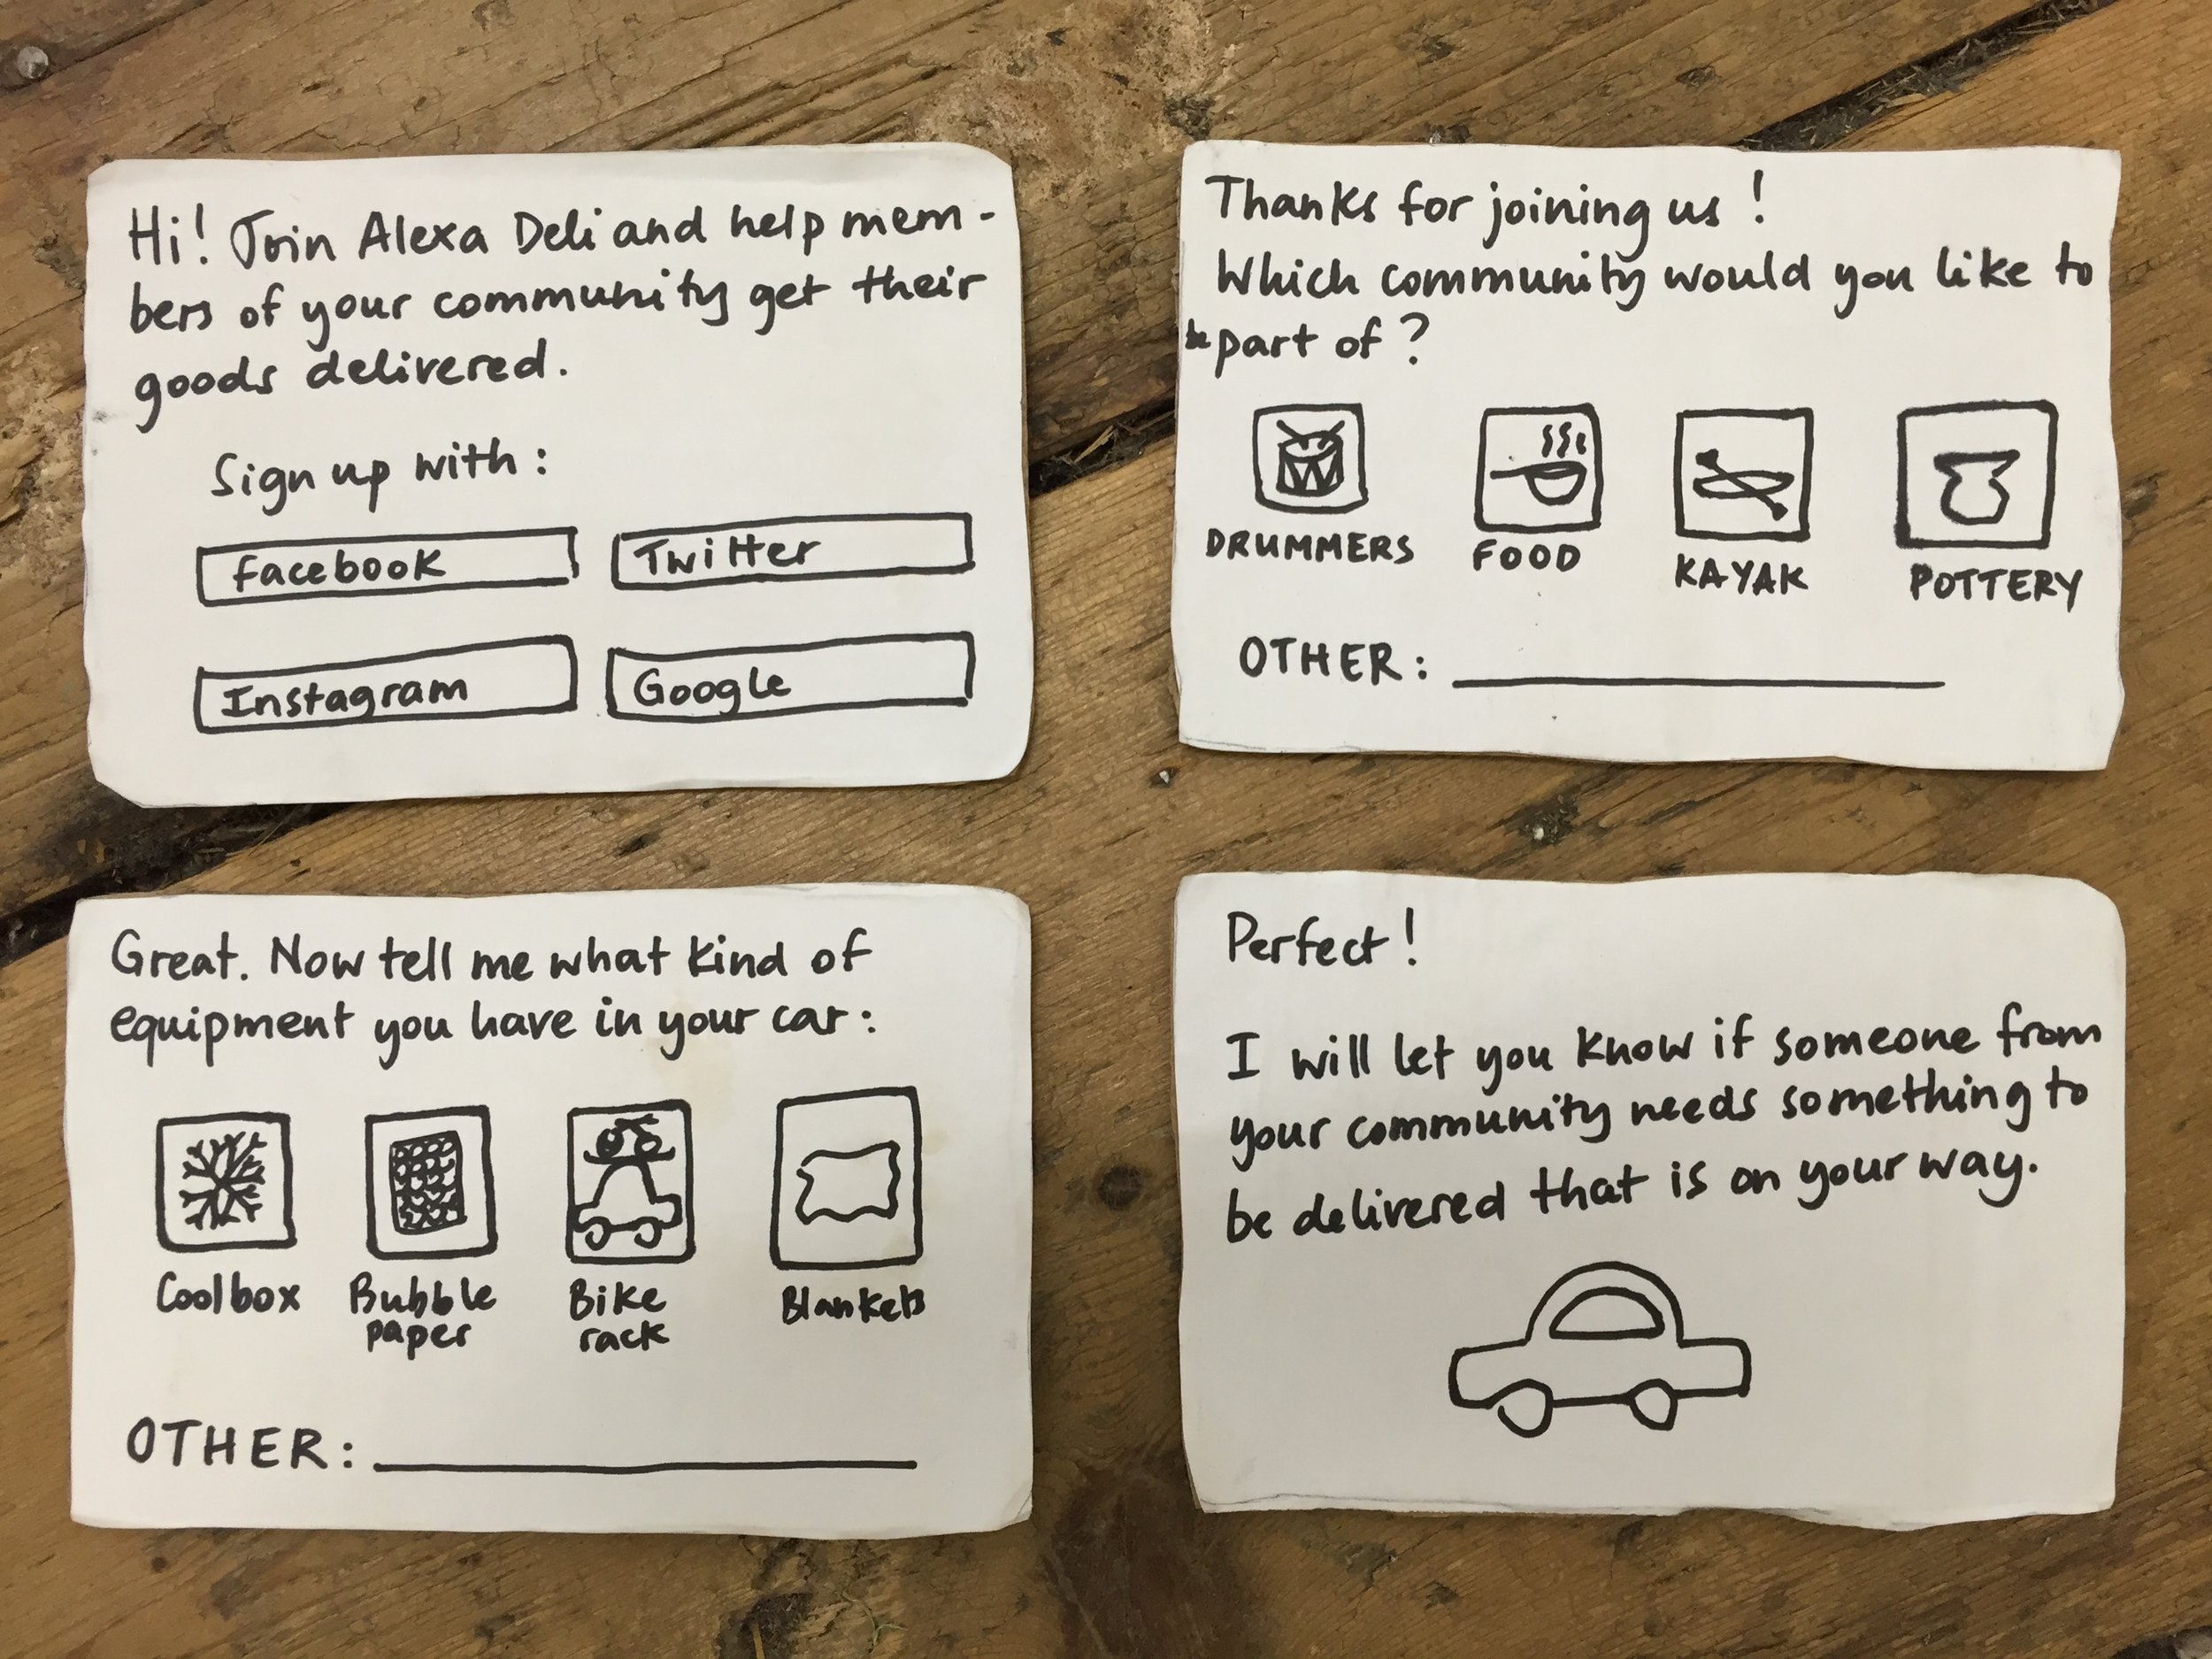 Hi! Join Alexa Deli and help mem-
bers of your community get their
goods delivered.
Sign up with:
Facebook
Twitter
Instagram
Google
Thanks for joining us!
Which community would you like to
be part of?
DRUMMERS
FOOD
KAYAK
POTTERY
OTHER:
Great. Now tell me what kind of
equipment you have in your car:
Coolbox
Bubble
paper
Bike
rack
Blankets
OTHER:
Perfect!
I will let you know if someone from
your community needs something to
be delivered that is on your way.